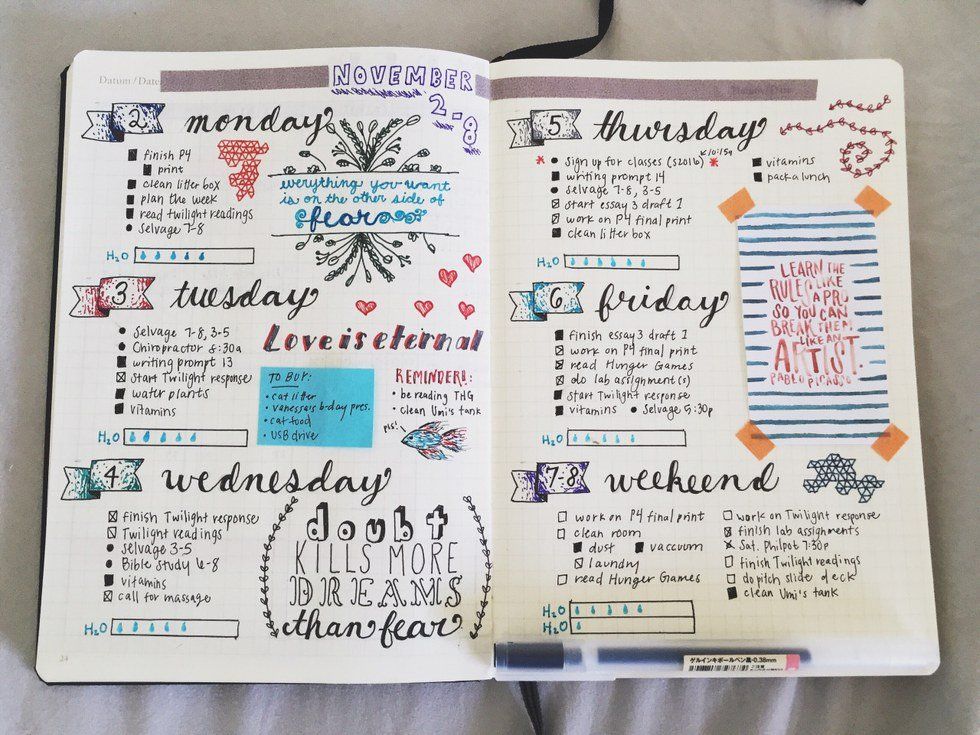 Datum/Date
NOVEMBER
2-8
2 monday
finish P4
print
clean litter box
plan the week
read twilight readings
Selvage 7-8
H2O
everything you want
is on the other side of
fear
3 tuesday
Selvage 7-8, 3-5
Chiropractor 8:30a
writing prompt 13
Start Twilight response
water plants
vitamins
H2O
Love is eternal
TO BUY:
• cat litter
• vanessa's b-day pres.
• cat food
• USB drive
REMINDER!!:
• be reading THG
• clean Umi's tank
pls!
4 wednesday
finish Twilight response
Twilight readings
Selvage 3-5
Bible Study 6-8
vitamins
call for massage
H2O
doubt
KILLS MORE
DREAMS
than fear
24
5 thursday
10:15a
* Sign up for classes (S2016) *
writing prompt 14
Selvage 7-8, 3-5
start essay 3 draft 1
work on P4 final print
clean litter box
vitamins
pack a lunch
H2O
6 friday
finish essay 3 draft 1
work on P4 final print
read Hunger Games
do lab assignment(s)
start Twilight response
vitamins • Selvage 5:30p
H2O
LEARN THE
RULES LIKE
A PRO
SO YOU CAN
BREAK THEM
LIKE AN
ARTIST.
PABLO PICASSO
7-8 weekend
work on P4 final print
clean room
dust vaccuum
laundry
read Hunger Games
work on Twilight response
finish lab assignments
Sat. Philpot 7:30p
finish Twilight readings
do pitch slide deck
clean Umi's tank
H2O
H2O
ゲルインキボールペン黒・0.38mm